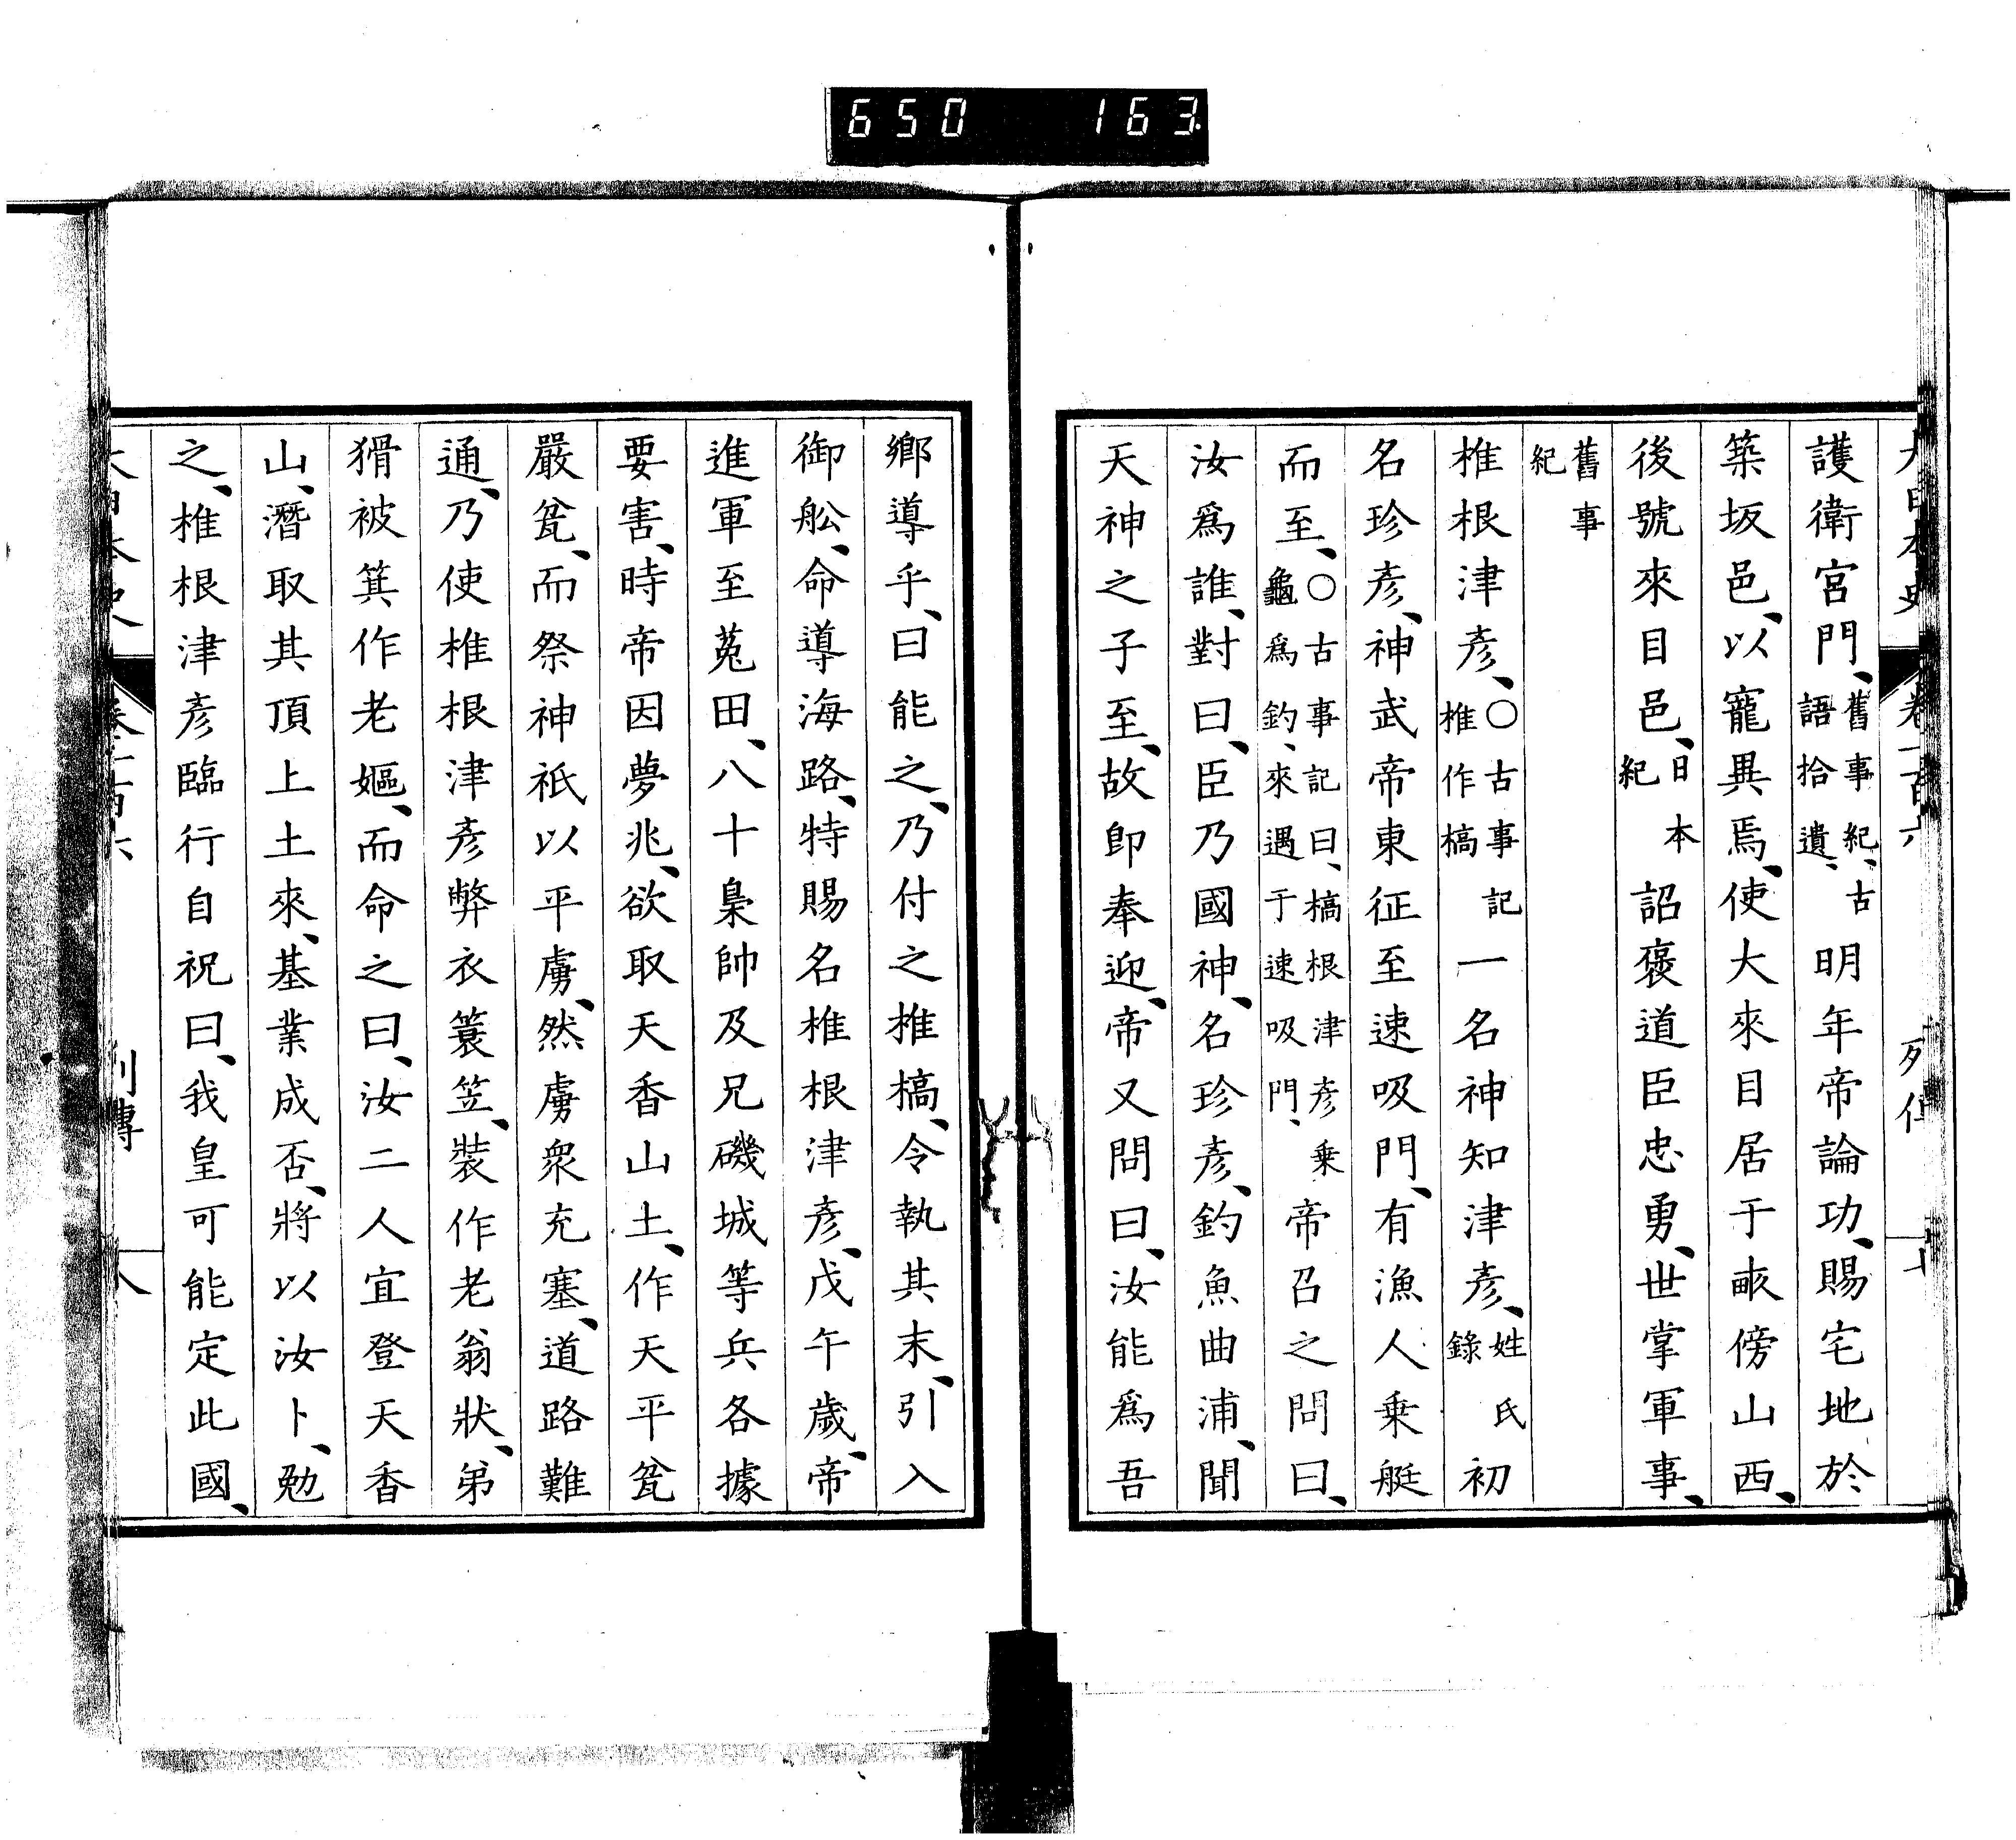 650 163
大日本史 卷一百六 列傳
護衛宮門、舊事紀、古語拾遺、明年帝論功、賜宅地於
築坂邑、以寵異焉、使大來目居于畝傍山西、
後號來目邑、日本紀詔褒道臣忠勇、世掌軍事、
舊事紀
椎根津彥、〇古事記椎作槁一名神知津彥、姓氏錄初
名珍彥、神武帝東征至速吸門、有漁人乘艇
而至、〇古事記曰、槁根津彥乘龜爲釣、來遇于速吸門、帝召之問曰、
汝爲誰、對曰、臣乃國神、名珍彥、釣魚曲浦、聞
天神之子至、故卽奉迎、帝又問曰、汝能爲吾
鄉導乎、曰能之、乃付之椎槁、令執其末、引入
御舩、命導海路、特賜名椎根津彥、戊午歲、帝
進軍至菟田、八十梟帥及兄磯城等兵各據
要害、時帝因夢兆、欲取天香山土、作天平瓮
嚴瓮、而祭神祇以平虜、然虜衆充塞、道路難
通、乃使椎根津彥弊衣簑笠、裝作老翁狀、弟
猾被箕作老嫗、而命之曰、汝二人宜登天香
山、潛取其頂上土來、基業成否、將以汝卜、勉
之、椎根津彥臨行自祝曰、我皇可能定此國、
大日本史 卷一百六 列傳 八